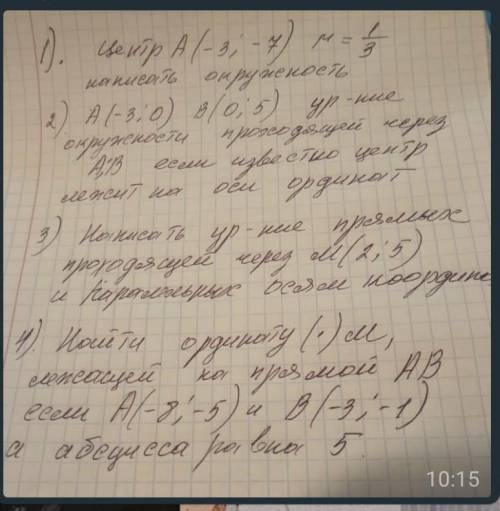 1). Центр A(-3; -7) r = 1/3
написать окружность
2) A(-3; 0) B(0; 5) ур-ние
окружности проходящей через
A,B если известно центр
лежит на оси ординат
3) Написать ур-ние прямых
проходящей через M(2; 5)
и параллельных осям координ
4). Найти ординату (·) M,
лежащей на прямой AB
если A(-8; -5) и B(-3; -1)
а абсцисса равна 5.
10:15